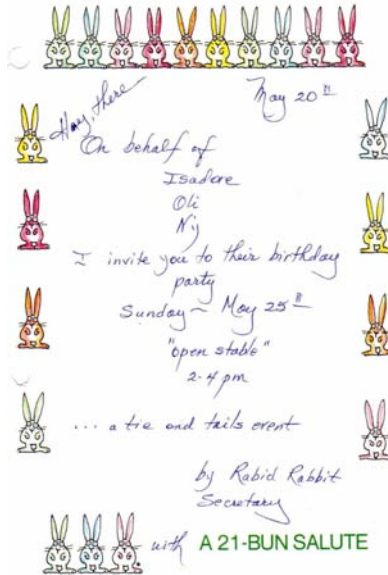 May 20th
Hay, there
On behalf of
Isadore
Oli
Nij
I invite you to their birthday
party
Sunday ~ May 25th
"open stable"
2-4 pm
... a tie and tails event
by Rabid Rabbit
Secretary
with A 21-BUN SALUTE